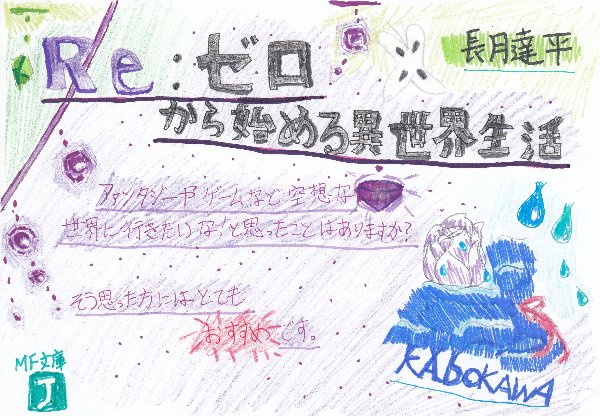 Re:ゼロ
から始める異世界生活
長月達平
ファンタジーやゲームなど空想な
世界に行きたいな!と思ったことはありますか?
そう思った方にはとても
おすすめです。
MF文庫
J
KADOKAWA